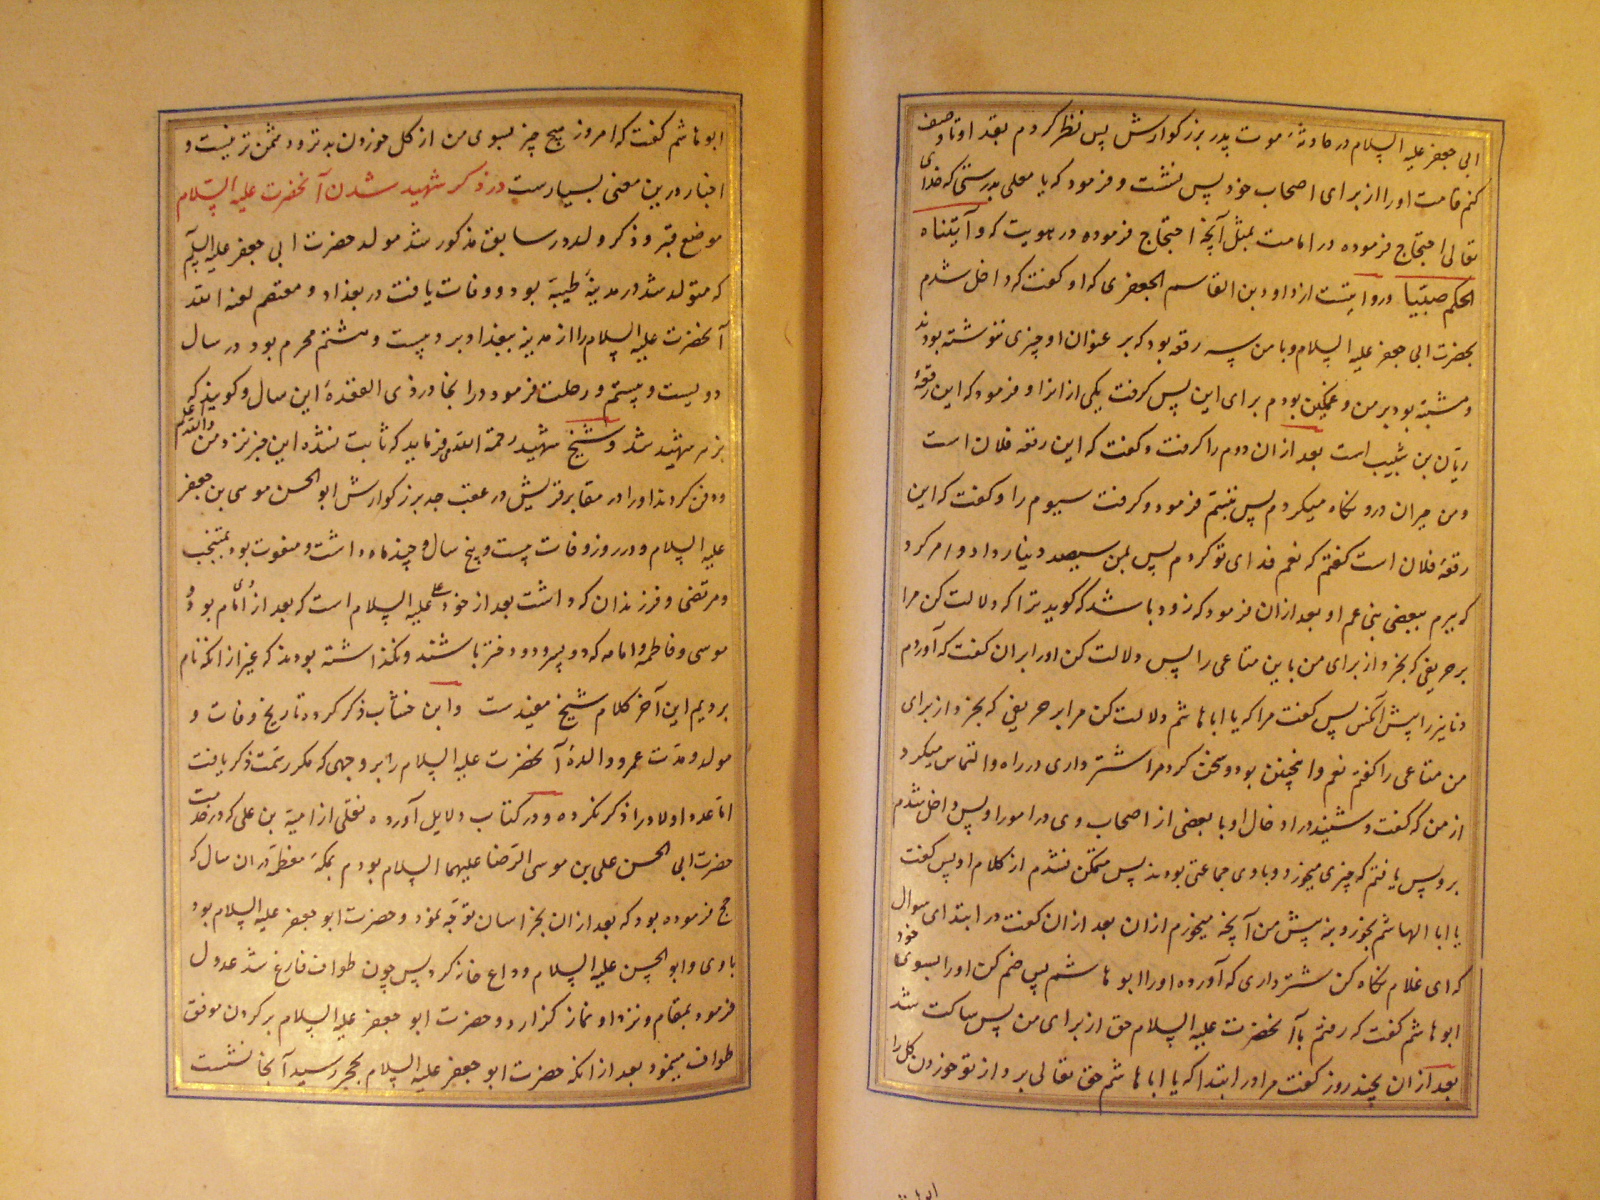 ابی جعفر علیه السلام در حادثهٔ موت پدر بزرکوارش پس نظر کردم بقد او تا وصف
کنم قامت او را از برای اصحاب خود پس نشست و فرمود که یا معلی بدرستی که خدای
تعالی احتجاج فرموده در امامت بمثل آنچه احتجاج فرموده در نبوت که و آتیناه
الحکم صبیّا و روایتست از داود بن القاسم الجعفری که او کفت که داخل شدم
بحضرت ابی جعفر علیه السلام و با من سه رقعه بود که بر عنوان او چیزی ننوشته بودند
و مشتبه بود بر من و غمکین بودم برای این پس کرفت یکی از انرا و فرمود که این رقعهٔ
ریّان بن شبیب است بعد از ان دوم را کرفت و کفت که این رقعه فلان است
و من حیران درو نکاه میکردم پس تبسّم فرمود و کرفت سیوم را و کفت که این
رقعهٔ فلان است کفتم که نعم فدای تو کردم پس بمن سیصد دینار داد و امر کرد
که ببرم ببعضی بنی عم او بعد از ان فرمود که زود باشد که کوید ترا که دلالت کن مرا
بر حریفی که بخرد از برای من باین متاعی را پس دلالت کن او را بر ان کفت که آوردم
دنانیر را پیش آنکس پس کفت مرا که یا ابا هاشم دلالت کن مرا بر حریفی که بخرد از برای
من متاعی را کفتم نعم و انچنین بود و سخن کرد مرا شترداری در راه و التماس میکرد
از من که کفت و شنید در ادخال او با بعضی از اصحاب وی در امور او پس داخل شدم
برو پس یافتم که چیزی میخورد و با وی جماعتی بودند پس متمکن نشدم از کلام او پس کفت
یا ابا الهاشم بخور و بنه پیش من آنچه میخورم از ان بعد از ان کفت در ابتدای سوال
که ای غلام نکاه کن شترداری که آورده او را ابو هاشم پس ضم کن او را بسوی خود
ابو هاشم کفت که رفتم با آنحضرت علیه السلام حق از برای من پس ساکت شد
بعد از ان بچند روز کفت مرا در ابتدا که یا ابا هاشم حق تعالی برد از تو خوردن کل را
ابو هاشم کفت که امروز هیچ چیز بسوی من از کل خوردن بدتر و دشمن تر نیست و
اخبار درین معنی بسیارست در ذکر شهید شدن آنحضرت علیه السّلام
موضع قبر و ذکر ولد در سابق مذکور شد مولد حضرت ابی جعفر علیه السلام
که متولد شد در مدینهٔ طیبه بود و وفات یافت در بغداد و معتصم لعنه الله
آنحضرت علیه السلام را از مدینه ببغداد برد بیست و هشتم محرم بود در سال
دویست و بیستم و رحلت فرمود در انجا در ذی القعدهٔ این سال و کویند که
بزهر شهید شد و شیخ شهید رحمة الله میفرماید که ثابت نشده این خبر نزد من والله اعلم
و دفن کردند او را در مقابر قریش در عقب جد بزرکوارش ابو الحسن موسی بن جعفر
علیه السلام و در روز وفات بیست و پنج سال و چند ماه داشت و منعوت بود بمنتجب
و مرتضی و فرزندان که داشت بعد از خود علی علیه السلام است که بعد از وی امام بود و
موسی و فاطمه و امامه که دو پسر و دو دختر باشند و نکذاشته بودند که غیر از انکه نام
بردیم این آخر کلام شیخ مفیدست و ابن خشّاب ذکر کرده تاریخ وفات و
مولد و مدّت عمر و والدهٔ آنحضرت علیه السلام را بر وجهی که مکرر سمت ذکر یافت
امّا عدد اولاد را ذکر نکرده و در کتاب دلایل آورده نقلی از امیّة بن علی که در خدمت
حضرت ابی الحسن علی بن موسی الرّضا علیهما السلام بودم بمکهٔ معظمه در ان سال که
حج فرموده بود که بعد از ان بخراسان توجّه نمود و حضرت ابو جعفر علیه السلام بود
با وی و ابو الحسن علیه السلام وداع خانه کرد پس چون طواف فارغ شد عدول
فرمود بمقام و نزد او نماز کزارد و حضرت ابو جعفر علیه السلام بر کردن موفق
طواف مینمود بعد از انکه حضرت ابو جعفر علیه السلام بحجر رسید آنجا نشست